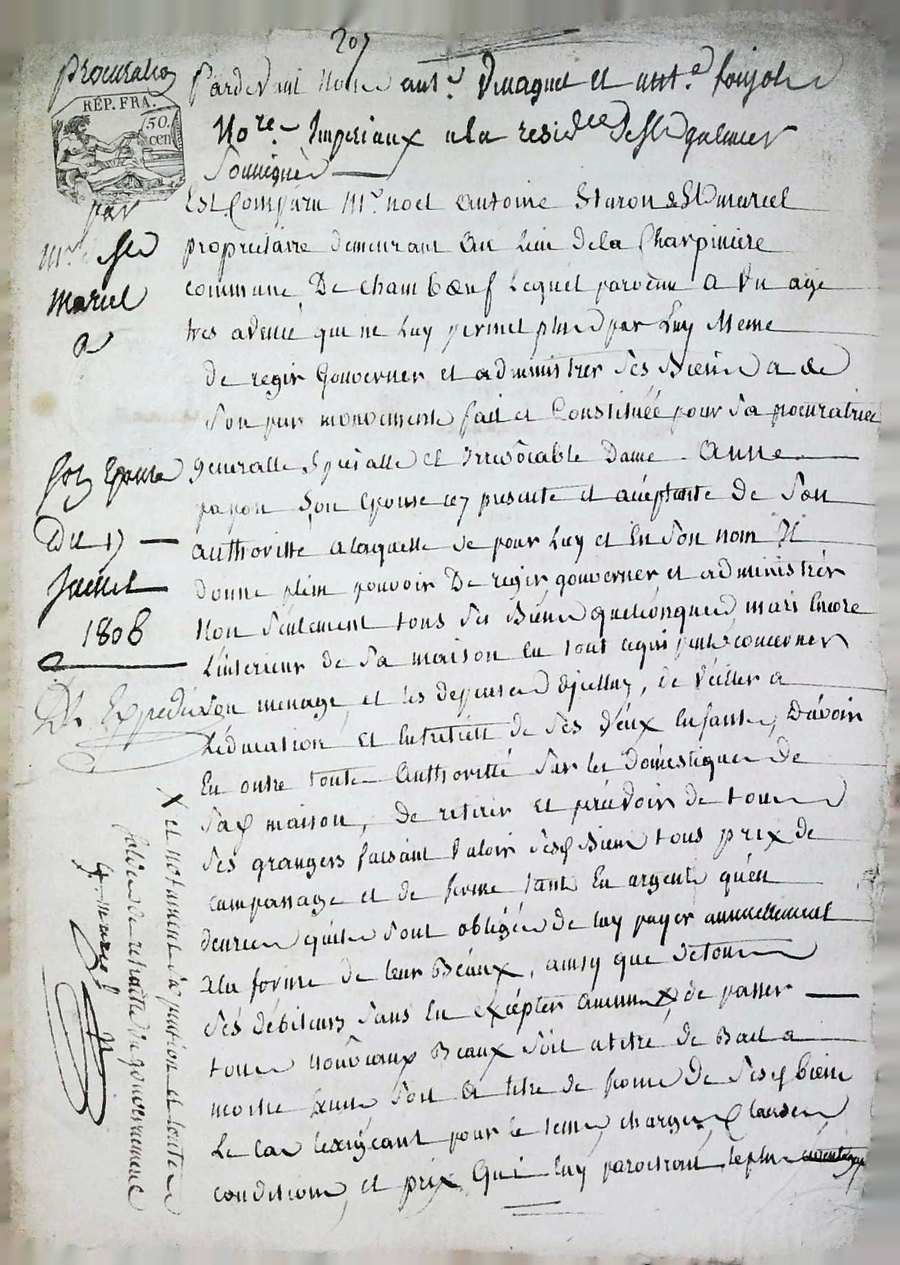 207
Procuration
RÉP. FRA.
50. cen
par
Mr. St
Marcel
a
Son Epouse
Du 17
Juillet
1808
Dt Expedié
Pardevant Nous ant.e et ant.e
No.re Imperiaux a la residce de St galmier
Soussignés
Est Comparu Mr. noel Antoine Staron de St marcel
propriétaire demeurant au Lieu dela Charpiniere
commune De Chambœuf Lequel parvenu a Un age
tres avancé qui ne Luy permet plus par Luy Meme
de regir Gouverner et administrer Ses Biens a de
Son pur mouvement fait et Constituée pour Sa procuratrice
generalle Spécialle et Irrevocable Dame Anne
payon Son Epouse icy presente et acceptante de Son
authorité a laquelle de pour Luy et En Son nom Il
donne plein pouvoir De regir gouverner et administrér
Non Seulement tous Ses Biens quelconques mais Encore
L'interieur de Sa maison En tout cequi peut concerner
Son menage, et les depenses d'jcelluy, de Veiller a
L'éducation et Entretien de Ses deux Enfants, D'avoir
En outre toute Authorité Sur les Domestiques de
Sa maison, de retirer et percevoir de tous
Ses grangers faisant Valoir Ses Biens tous prix de
campanage et de ferme tant En argent qu'en
denrées qu'ils Sont obligés de luy payer annuellement
a la forme de leur Béaux, ainsy que de tous
Ses débiteurs Sans En excépter aucuns X de passer
tous Nouveaux Beaux Soit a titre de Bail a
moitié fruit Soit a titre de ferme de Ses biens
Le Cas l'exigeant pour le tems, charges, Clauses
conditions, et prix Qui luy paroitront le plus
X et notament sa pension et toutes
soldes de retraitte du gouvernement
St. marcel